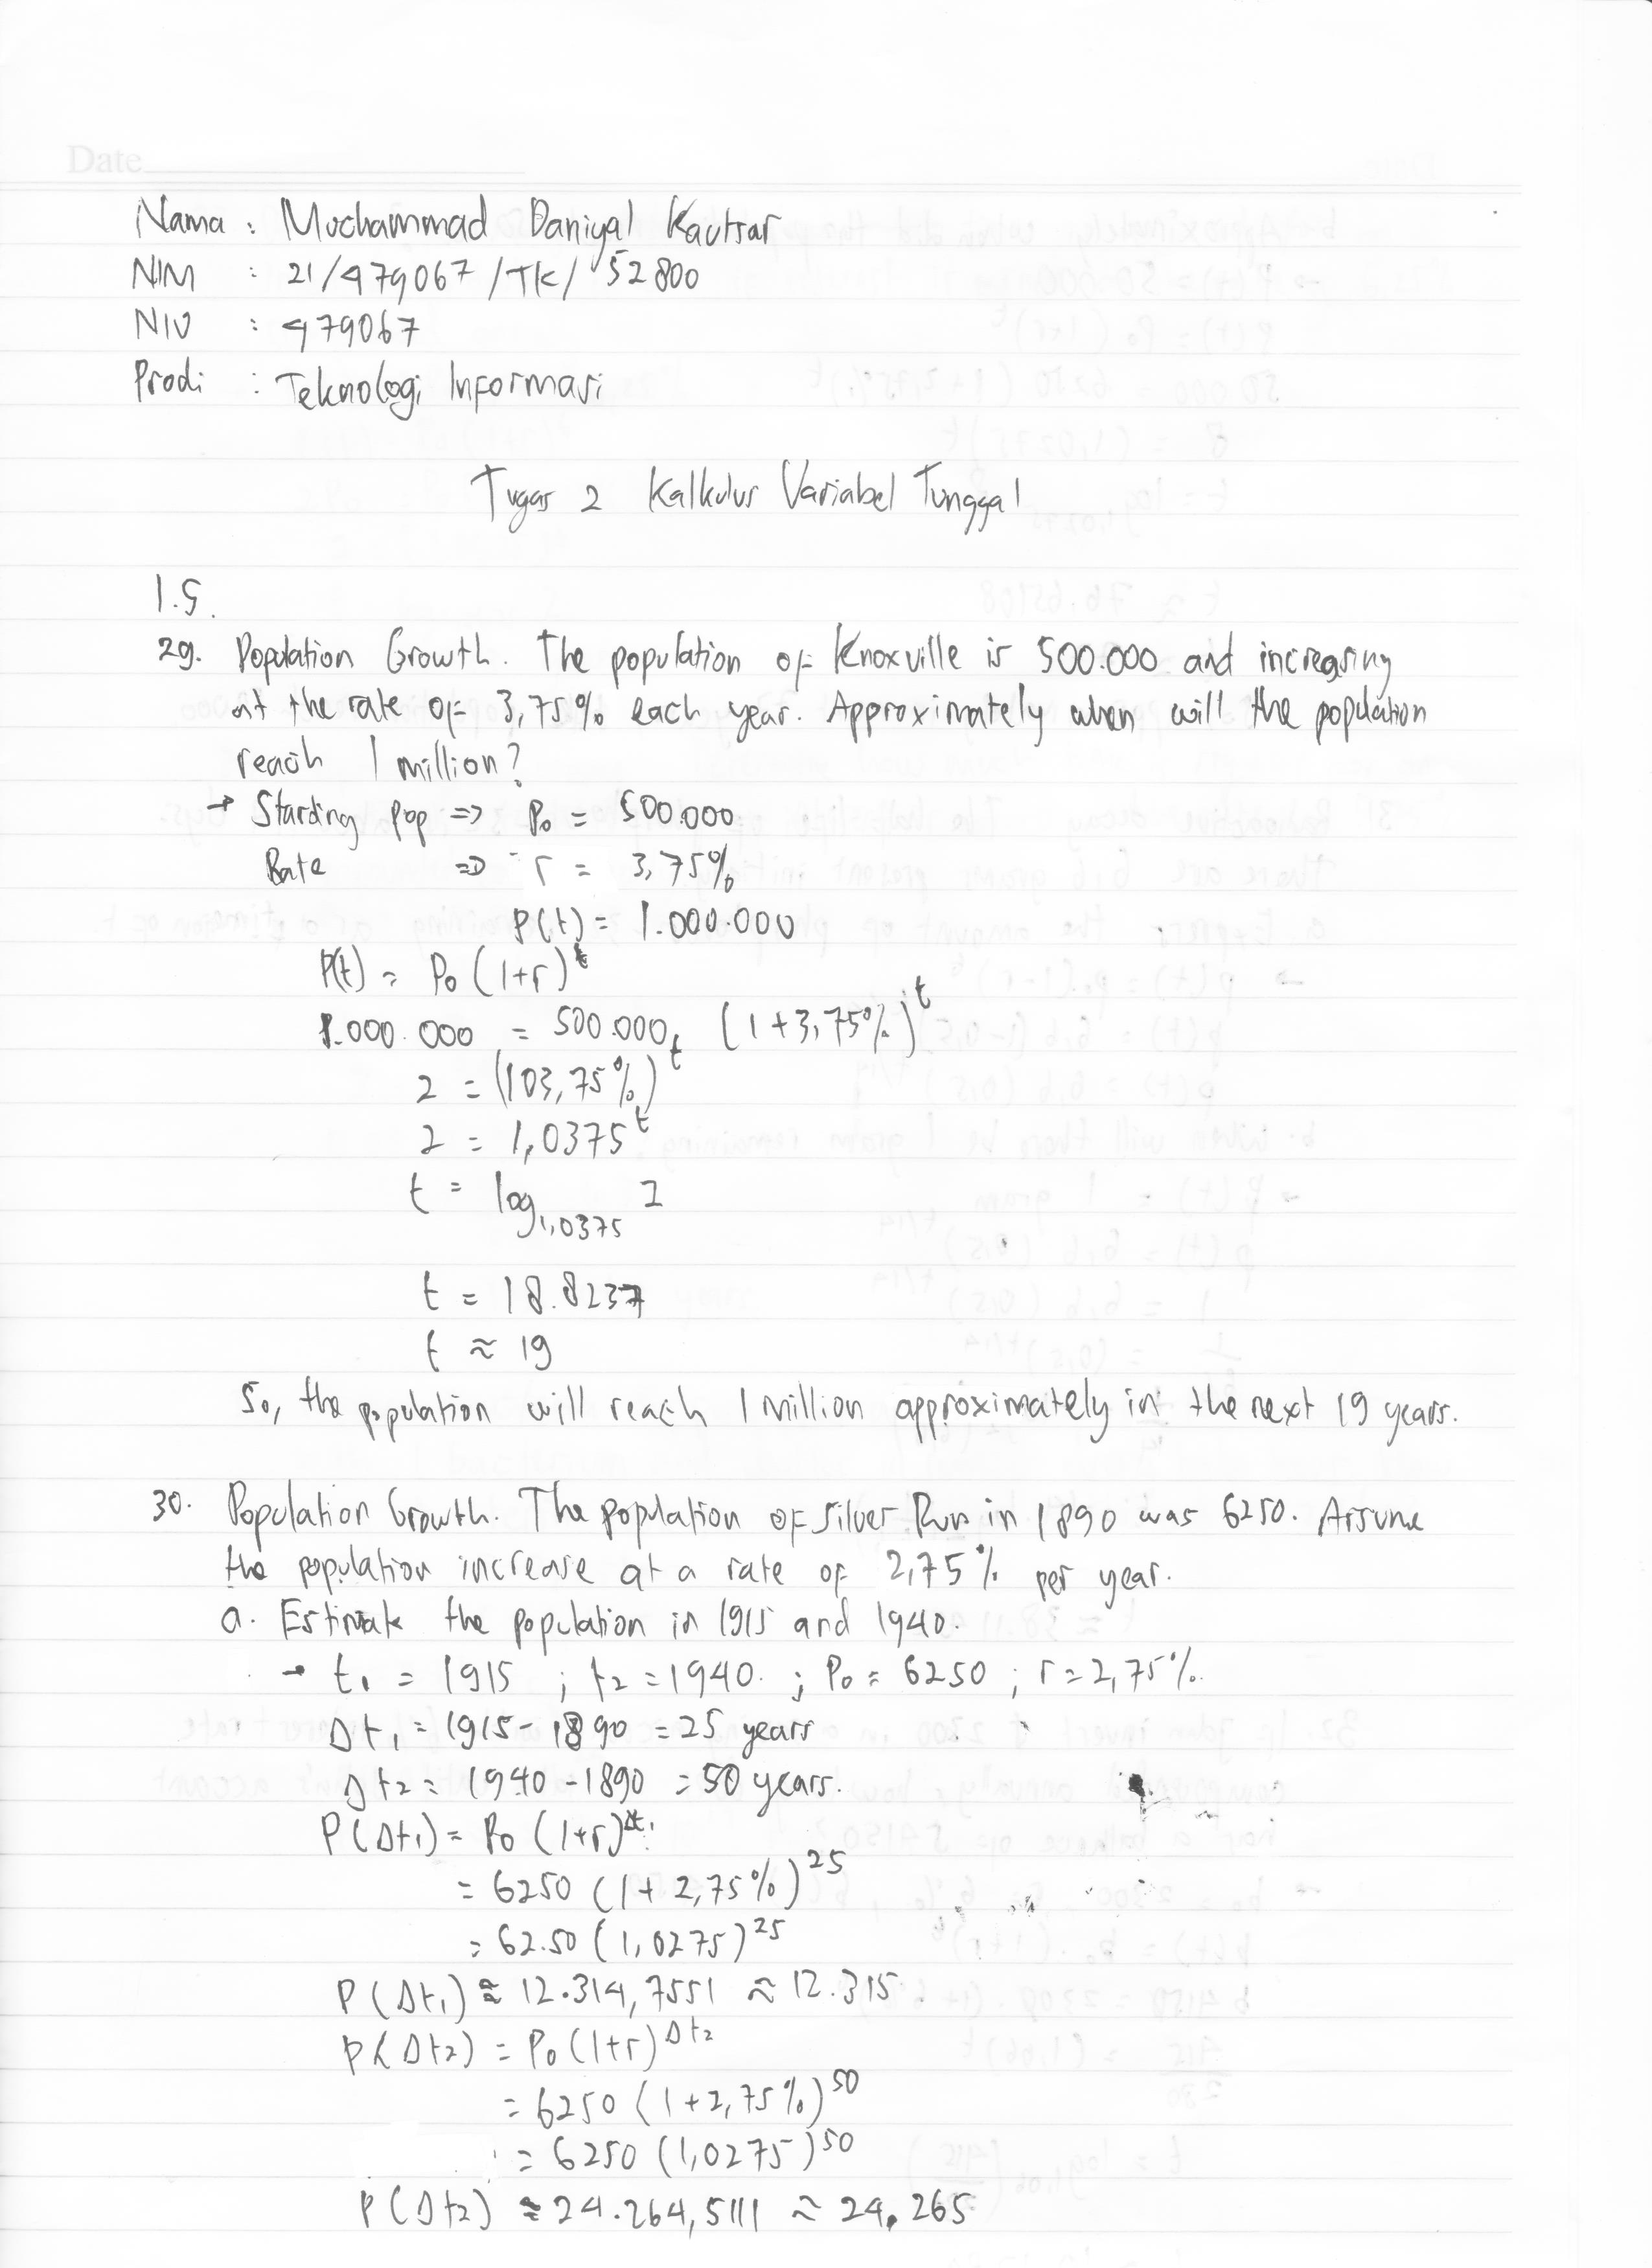 Date
Nama : Mochammad Daniyal Kautsar
NIM : 21/479067/TK/52800
NIU : 479067
Prodi : Teknologi Informasi
Tugas 2 Kalkulus Variabel Tunggal
1.5.
29. Population Growth. The population of Knoxville is 500.000 and increasing
at the rate of 3,75% each year. Approximately when will the population
reach 1 million?
→ Starting pop => P₀ = 500.000
Rate => r = 3,75%
P(t) = 1.000.000
P(t) = P₀ (1+r)^t
1.000.000 = 500.000 (1+3,75%)^t
2 = (103,75%)^t
2 = 1,0375^t
t = log₁,₀₃₇₅ 2
t = 18.8237
t ≈ 19
So, the population will reach 1 million approximately in the next 19 years.
30. Population Growth. The population of Silver Run in 1890 was 6250. Assume
the population increase at a rate of 2,75% per year.
a. Estimate the population in 1915 and 1940.
→ t₁ = 1915 ; t₂ = 1940. ; P₀ = 6250 ; r = 2,75%.
Δt₁ = 1915 - 1890 = 25 years
Δt₂ = 1940 - 1890 = 50 years.
P(Δt₁) = P₀ (1+r)^Δt₁
= 6250 (1 + 2,75%)^25
= 62.50 (1,0275)^25
P(Δt₁) ≈ 12.314,7551 ≈ 12.315
P(Δt₂) = P₀ (1+r)^Δt₂
= 6250 (1+2,75%)^50
= 6250 (1,0275)^50
P(Δt₂) ≈ 24.264,5111 ≈ 24.265